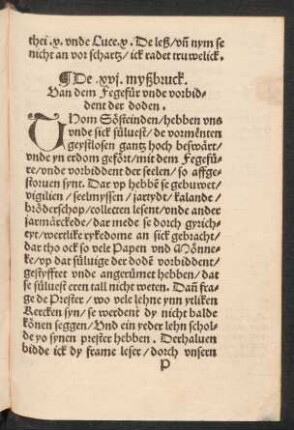 thei .x. vnde Luce.x. De leß/ vñ nym se
nicht an vor schartz/ ick radet truwelick.
¶ De .xvj. myßbruck.
Van dem Fegefür vnde vorbid-
dent der doden.
Vnde sick süluest/ de vormēnten
geystlosen gantz hoch beswärt/
vnde yn erdom gefört/ mit dem Fegefü-
re/ vnde vorbiddent der seelen/ so affge-
storuen synt. Dar vp hebbē se gebuwet/
vigilien/ seelmyssen/ jartydt/ kalande/
bröderschop/ collecten lesent/ vnde ander
jarmärckede/ dar mede se dorch gyrich-
eyt/ wertlike rykedome an sick gebracht/
dar tho ock so vele Papen vnd Mönne-
ke/ vp dat süluige der dodē vorbiddent/
gestyfftet vnde angerümet hebben/ dat
se süluest eren tall nicht weten. Dañ fra-
ge de Prester/ wo vele lehne ynn ytliken
Kercken syn/ se werdent dy nicht balde
könen seggen/ Vnd ein yeder lehn schol-
de yo synen prester hebben. Derhaluen
bidde ick dy frame leser/ dorch vnsern
p